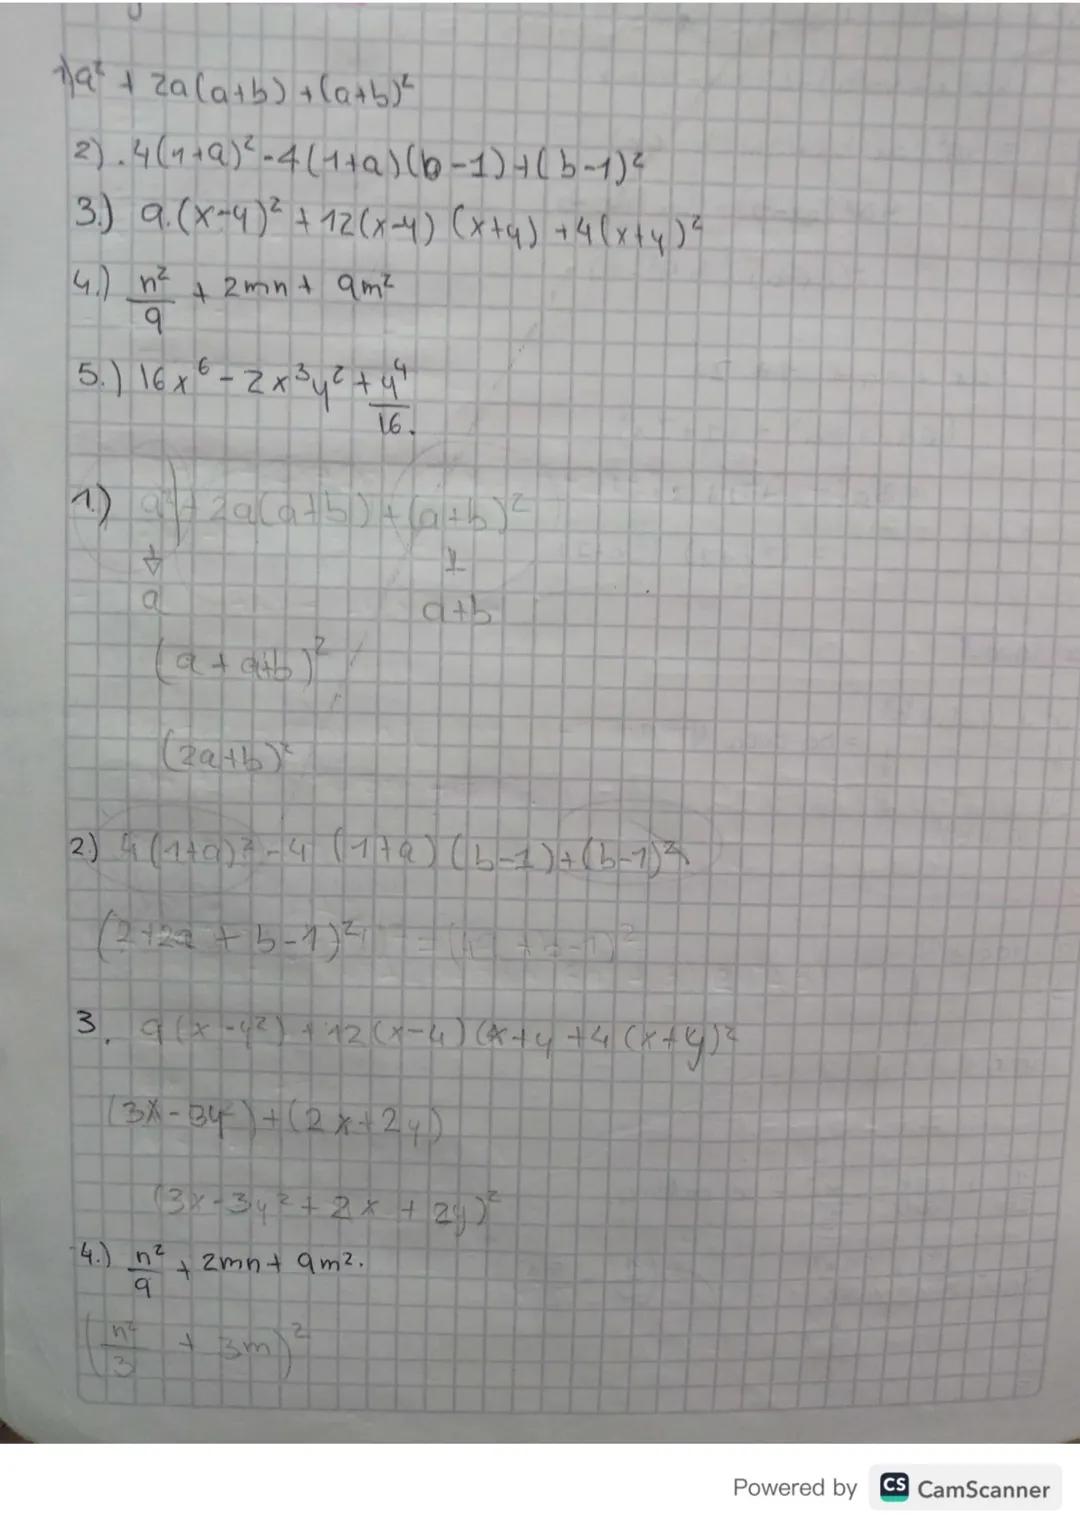 1) a² + 2a(a+b) + (a+b)²
2) . 4(1+a)² - 4(1+a)(b-1) + (b-1)²
3.) 9.(x-y)² + 12(x-y) (x+y) + 4(x+y)²
4.) n²/9 + 2mn + 9m²
5.) 16x⁶ - 2x³y² + y⁴/16.
1.) a² + 2a(a+b) + (a+b)²
a a+b
(a + a+b)²
(2a+b)²
2.) 4(1+a)² - 4 (1+a) (b-1) + (b-1)²
(2+2a + b-1)²
3. 9(x-y²) + 12(x-y)(x+y + 4(x+y)²
(3x-3y²) + (2x+2y)
(3x-3y² + 2x + 2y)²
4.) n²/9 + 2mn + 9m².
(n²/3 + 3m)²
Powered by CS CamScanner